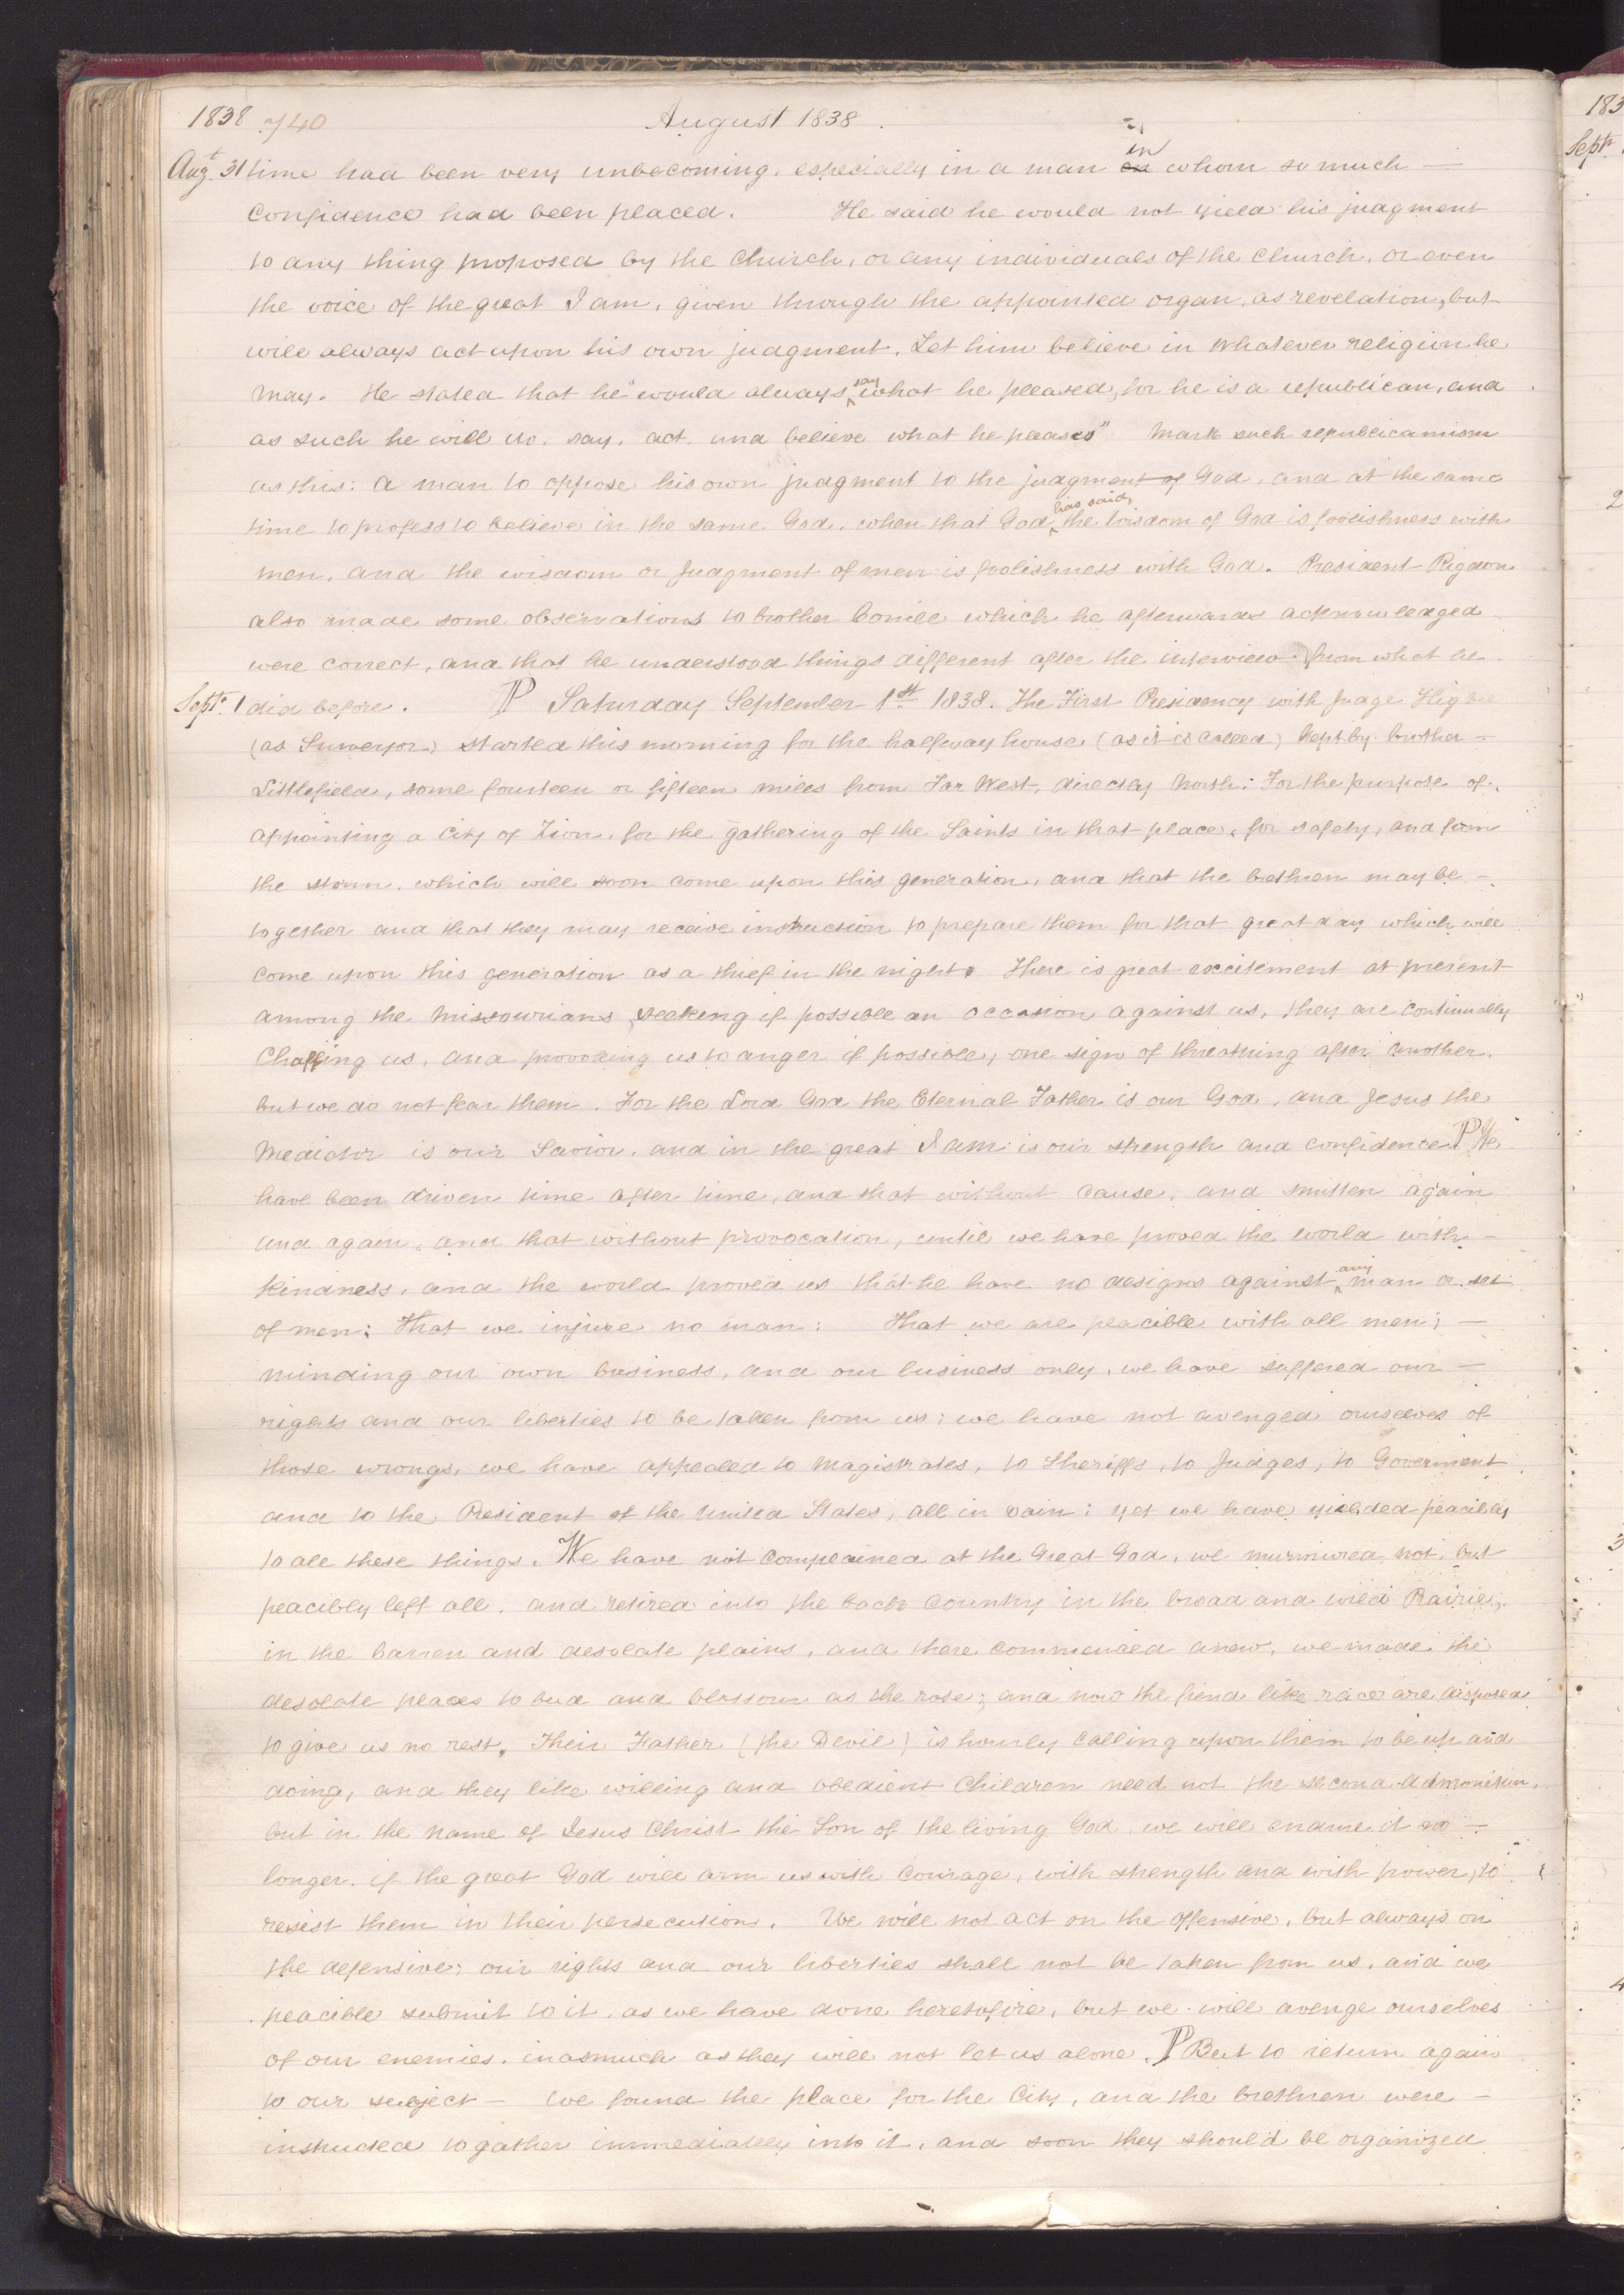 1838 740 August 1838.
Augt. 31 time had been very unbecoming, especially in a man in on whom so much —
confidence had been placed. He said he would not yield his judgment
to any thing proposed by the Church, or any individuals of the Church, or even
the voice of the great I am, given through the appointed organ, as revelation, but
will always act upon his own judgment. Let him believe in whatever religion he
may. He stated that he "would always say what he pleased, for he is a republican, and
as such he will do, say, act, and believe what he pleases" Mark such republicanism
as this: A man to oppose his own judgment to the judgment of God, and at the same
time to profess to believe in the same God, when that God has said, the wisdom of God is foolishness with
men, and the wisdom or judgment of men is foolishness with God. President Rigdon
also made some observations to brother Corrill which he afterwards acknowledged
were correct, and that he understood things different after the interview from what he
Septr. 1 did before. P Saturday September 1st 1838. The First Presidency with Judge Higbee
(as Surveyor) started this morning for the halfway house (as it is called) kept by brother —
Littlefield, some fourteen or fifteen miles from Far West, directly North: For the purpose of
appointing a City of Zion, for the gathering of the Saints in that place, for safety, and from
the storm, which will soon come upon this generation, and that the brethren may be —
together and that they may receive instruction to prepare them for that great day which will
come upon this generation as a thief in the night. There is great excitement at present
among the Missourians, seeking if possible an occasion against us, they are continually
Chaffing us, and provoking us to anger if possible, one sign of threatning after another.
but we do not fear them. For the Lord God the Eternal Father is our God, and Jesus the
Mediator is our Savior, and in the great I am is our strength and confidence. P We
have been driven time after time, and that without cause, and smitten again
and again, and that without provocation, until we have proved the world with —
kindness, and the world proved us that we have no designs against any man or set
of men: That we injure no man: That we are peacible with all men; —
minding our own business, and our business only, we have suffered our —
rights and our liberties to be taken from us: we have not avenged ourselves of
those wrongs, we have appealed to Magistrates, to Sheriffs, to Judges, to Goverment
and to the President of the United States, all in vain: yet we have yielded peacibly
to all these things. We have not complained at the Great God, we murmured not, but
peacibly left all, and retired into the back Country in the broad and wild Prairie,
in the barren and desolate plains, and there commenced anew, we made the
desolate places to bud and blossom as the rose; and now the fiend like race are disposed
to give us no rest. Their Father (the Devil) is hourly calling upon them to be up and
doing, and they like willing and obedient Children need not the second admonition,
but in the name of Jesus Christ the Son of the living God we will endure it no —
longer, if the great God will arm us with courage, with strength and with power, to
resist them in their persecutions. We will not act on the offensive, but always on
the defensive; our rights and our liberties shall not be taken from us, and we
peacible submit to it, as we have done heretofore, but we will avenge ourselves
of our enemies, inasmuch as they will not let us alone. P But to return again
to our subject — We found the place for the City, and the brethren were —
instructed to gather immediately into it, and soon they should be organized
183
Septr.
2
3
4